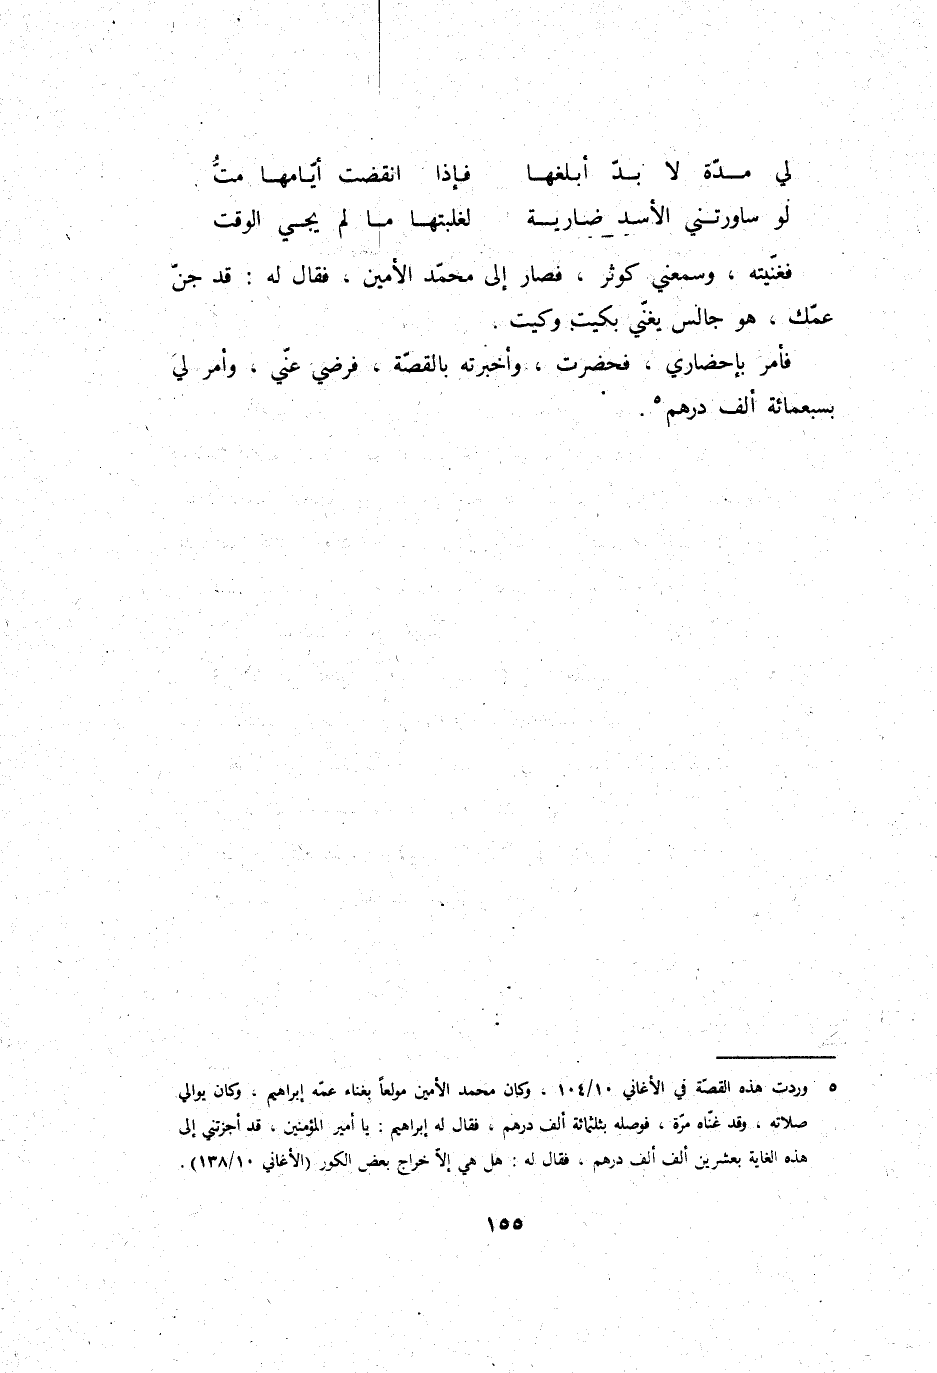 لي مـدّة لا بـدّ أبلغهـا فـإذا انقضت أيّـامهـا متُّ
لو ساورتـني الأسد ضاريـة لغلبتهـا مـا لم يجـي الوقت
فغنّيته ، وسمعني كوثر ، فصار إلى محمّد الأمين ، فقال له : قد جنّ
عمّك ، هو جالس يغنّي بكيت وكيت .
فأمر بإحضاري ، فحضرت ، وأخبرته بالقصّة ، فرضي عنّي ، وأمر لي
بسبعمائة ألف درهم٥ .
٥ وردت هذه القصّة في الأغاني ١٠٤/١٠ ، وكان محمد الأمين مولعاً بغناء عمّه إبراهيم ، وكان يوالي
صلاته ، وقد غنّاه مرّة ، فوصله بثلثمائة ألف درهم ، فقال له إبراهيم : يا أمير المؤمنين ، قد أجزتني إلى
هذه الغاية بعشرين ألف ألف درهم ، فقال له : هل هي إلاّ خراج بعض الكور (الأغاني ١٣٨/١٠) .
١٥٥